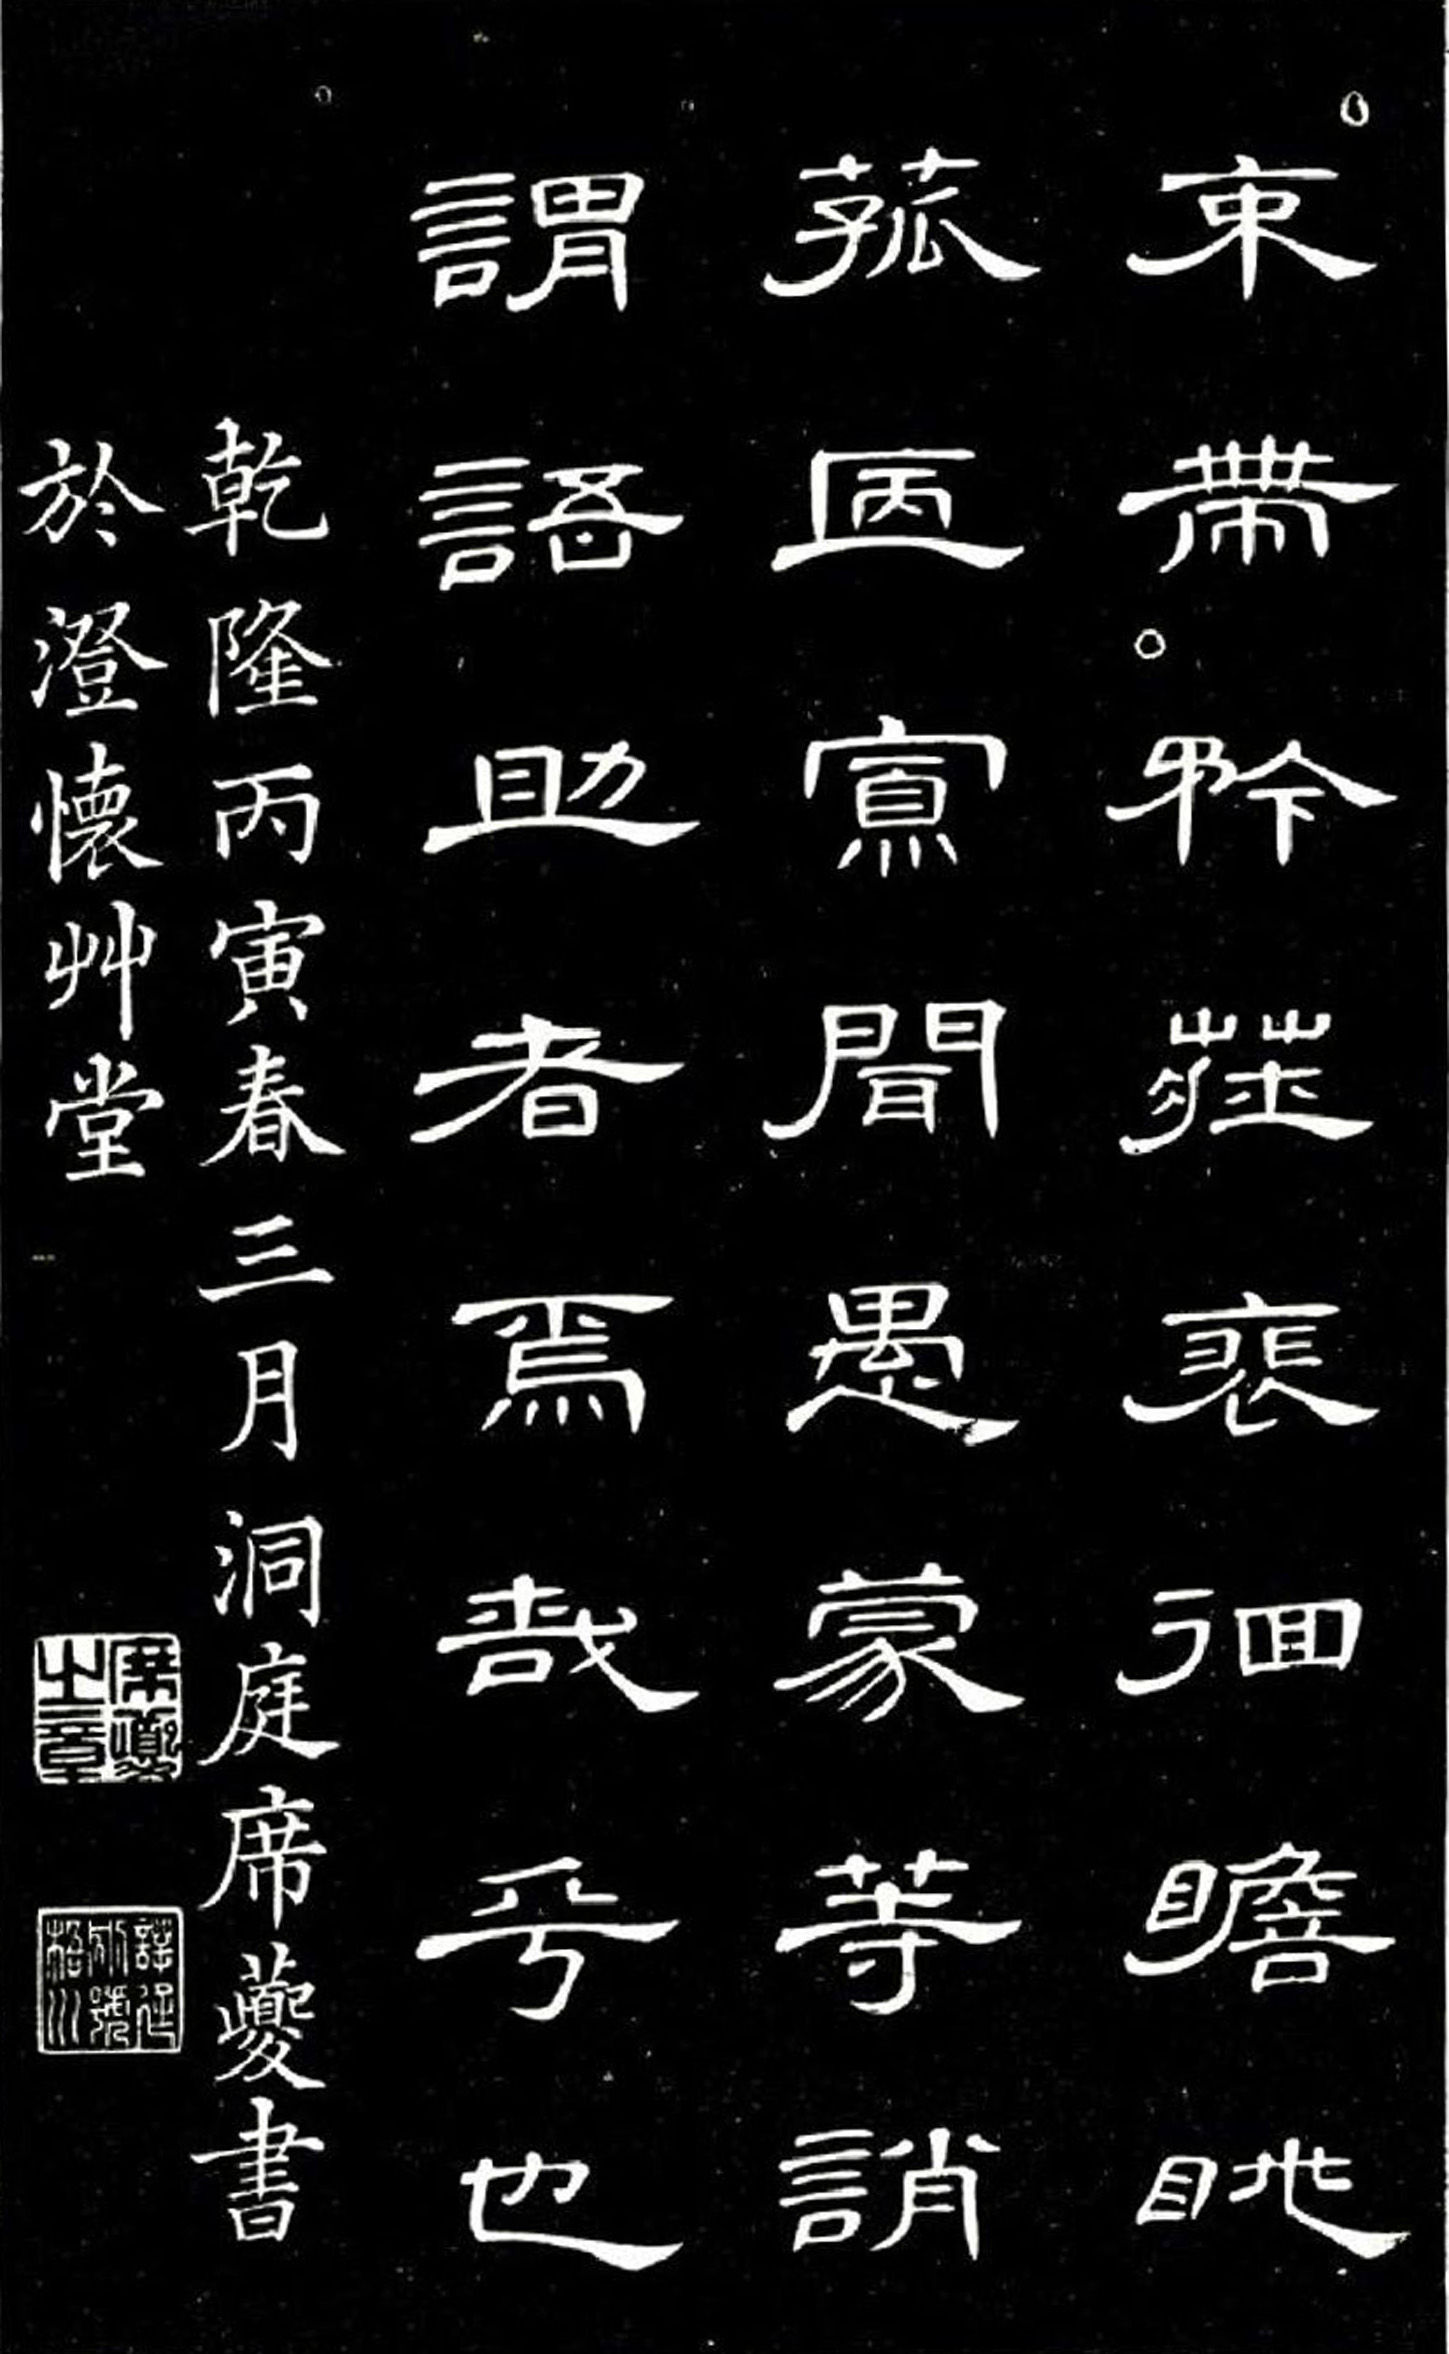 束帶矜莊裵徊瞻眺
孤陋寡聞愚蒙等誚
謂語助者焉哉乎也
乾隆丙寅春三月洞庭席夔書
於澄懷艸堂
席夔之章